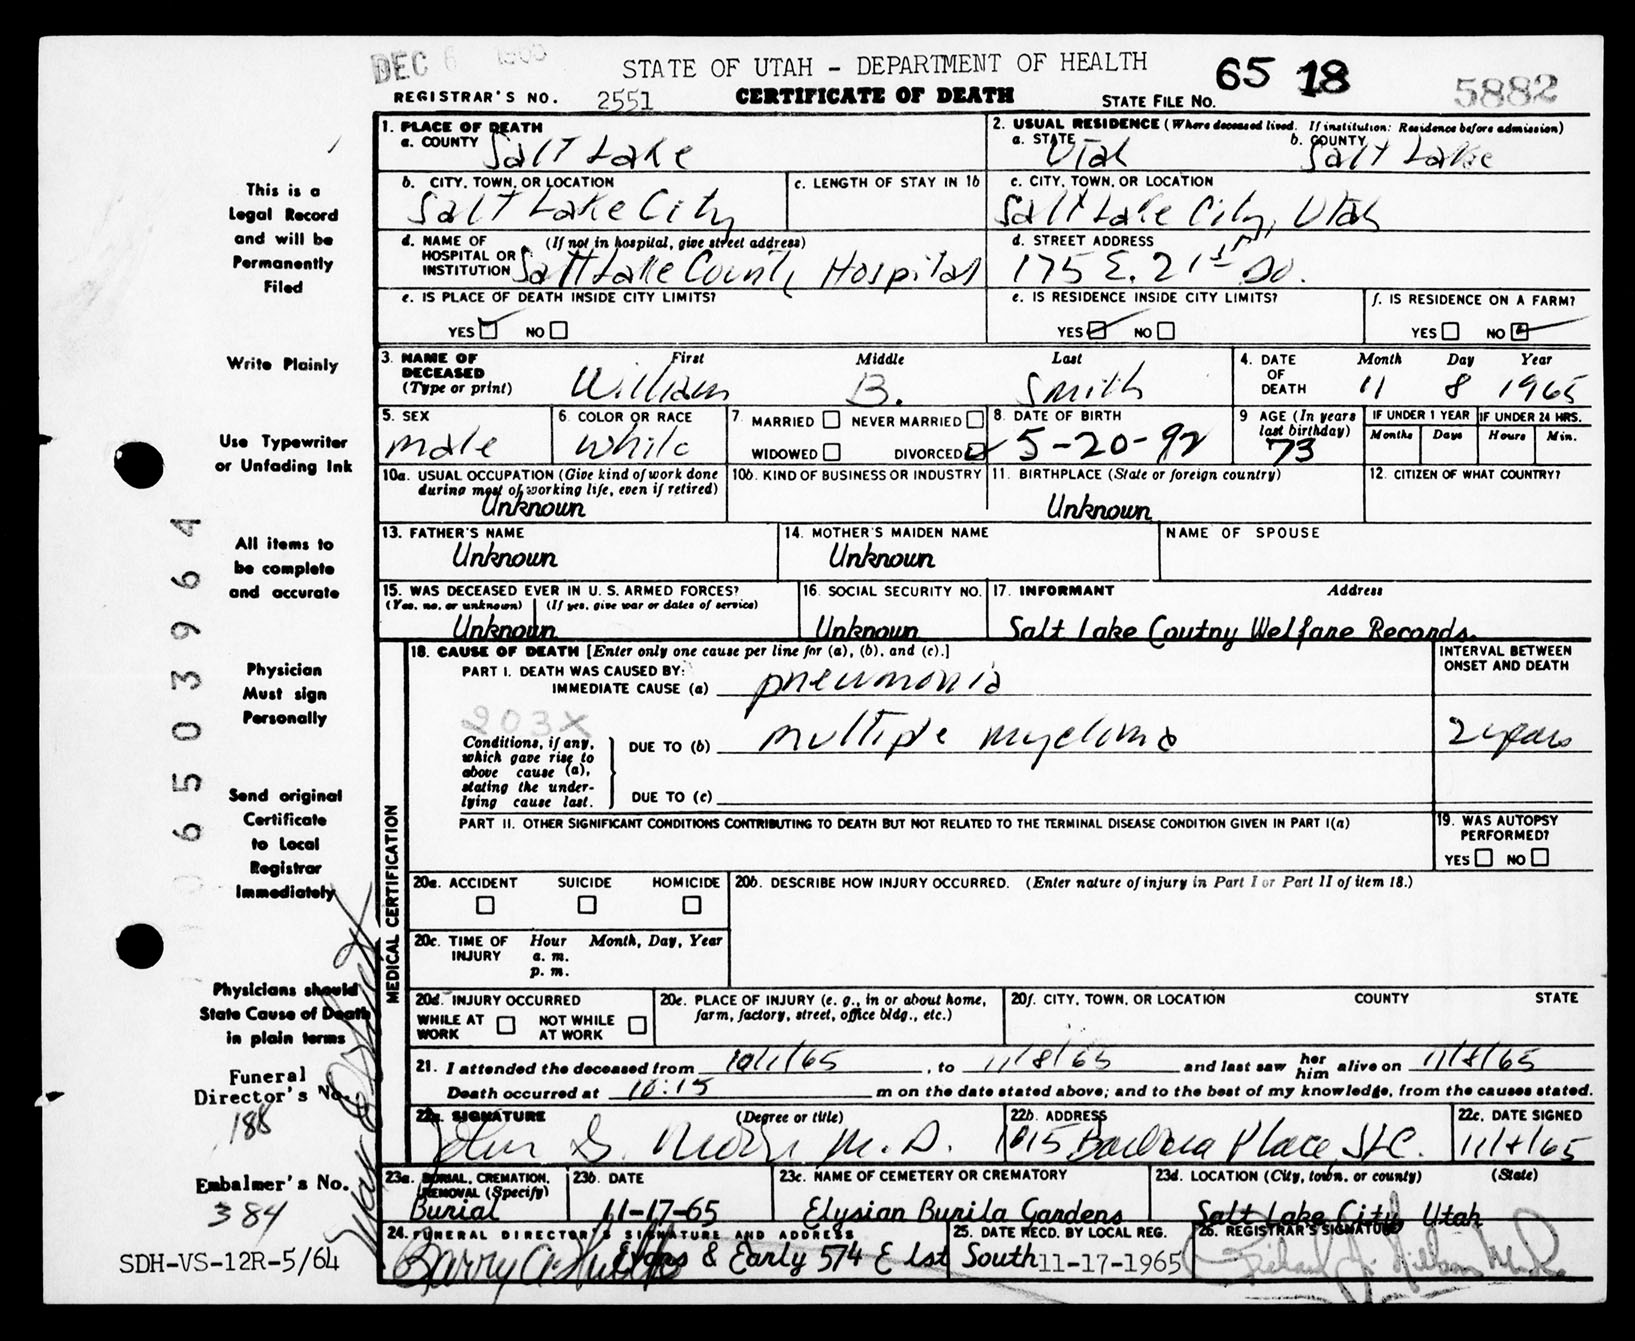 DEC 6
STATE OF UTAH - DEPARTMENT OF HEALTH 65 18 5882
REGISTRAR'S NO. 2551 CERTIFICATE OF DEATH STATE FILE NO.
1. PLACE OF DEATH
a. COUNTY Salt Lake
2. USUAL RESIDENCE (Where deceased lived. If institution: Residence before admission)
a. STATE Utah b. COUNTY Salt Lake
b. CITY, TOWN, OR LOCATION Salt Lake City
c. LENGTH OF STAY IN 1b
c. CITY, TOWN, OR LOCATION Salt Lake City, Utah
d. NAME OF HOSPITAL OR INSTITUTION (If not in hospital, give street address) Salt Lake County Hospital
d. STREET ADDRESS 175 E. 21st So.
e. IS PLACE OF DEATH INSIDE CITY LIMITS?
YES NO
e. IS RESIDENCE INSIDE CITY LIMITS?
YES NO
f. IS RESIDENCE ON A FARM?
YES NO
3. NAME OF DECEASED (Type or print) First Middle Last
William B. Smith
4. DATE OF DEATH Month Day Year
11 8 1965
5. SEX male
6. COLOR OR RACE white
7 MARRIED NEVER MARRIED
WIDOWED DIVORCED
8. DATE OF BIRTH 5-20-92
9 AGE (In years last birthday) 73
IF UNDER 1 YEAR IF UNDER 24 HRS.
Months Days Hours Min.
10a. USUAL OCCUPATION (Give kind of work done during most of working life, even if retired) Unknown
10b. KIND OF BUSINESS OR INDUSTRY
11. BIRTHPLACE (State or foreign country) Unknown
12. CITIZEN OF WHAT COUNTRY?
13. FATHER'S NAME Unknown
14. MOTHER'S MAIDEN NAME Unknown
NAME OF SPOUSE
15. WAS DECEASED EVER IN U. S. ARMED FORCES?
(Yes, no, or unknown) (If yes, give war or dates of service)
Unknown
16. SOCIAL SECURITY NO. Unknown
17. INFORMANT Address
Salt Lake Coutny Welfare Records.
MEDICAL CERTIFICATION
18. CAUSE OF DEATH [Enter only one cause per line for (a), (b), and (c).]
INTERVAL BETWEEN ONSET AND DEATH
PART I. DEATH WAS CAUSED BY:
IMMEDIATE CAUSE (a) pneumonia
203X
Conditions, if any, which gave rise to above cause (a), stating the underlying cause last.
DUE TO (b) multiple myeloma 2 years
DUE TO (c)
PART II. OTHER SIGNIFICANT CONDITIONS CONTRIBUTING TO DEATH BUT NOT RELATED TO THE TERMINAL DISEASE CONDITION GIVEN IN PART I(a)
19. WAS AUTOPSY PERFORMED?
YES NO
20a. ACCIDENT SUICIDE HOMICIDE
20b. DESCRIBE HOW INJURY OCCURRED. (Enter nature of injury in Part I or Part II of item 18.)
20c. TIME OF INJURY Hour Month, Day, Year
a. m.
p. m.
20d. INJURY OCCURRED
WHILE AT WORK NOT WHILE AT WORK
20e. PLACE OF INJURY (e. g., in or about home, farm, factory, street, office bldg., etc.)
20f. CITY, TOWN, OR LOCATION COUNTY STATE
21. I attended the deceased from 10/1/65, to 11/8/65 and last saw her him alive on 11/8/65
Death occurred at 10:15 m on the date stated above; and to the best of my knowledge, from the causes stated.
22a. SIGNATURE (Degree or title)
John M.D.
22b. ADDRESS 1015 Barbara Place, SLC.
22c. DATE SIGNED 11/8/65
23a. BURIAL, CREMATION, REMOVAL (Specify) Burial
23b. DATE 11-17-65
23c. NAME OF CEMETERY OR CREMATORY Elysian Burila Gardens
23d. LOCATION (City, town, or county) (State)
Salt Lake City Utah
24. FUNERAL DIRECTOR'S SIGNATURE AND ADDRESS
Evans & Early 574 E 1st South
25. DATE RECD. BY LOCAL REG. 11-17-1965
26. REGISTRAR'S SIGNATURE
This is a
Legal Record
and will be
Permanently
Filed
Write Plainly
Use Typewriter
or Unfading Ink
All items to
be complete
and accurate
Physician
Must sign
Personally
Send original
Certificate
to Local
Registrar
Immediately
Physicians should
State Cause of Death
in plain terms
Funeral
Director's No.
188
Embalmer's No.
384
SDH-VS-12R-5/64
06503964